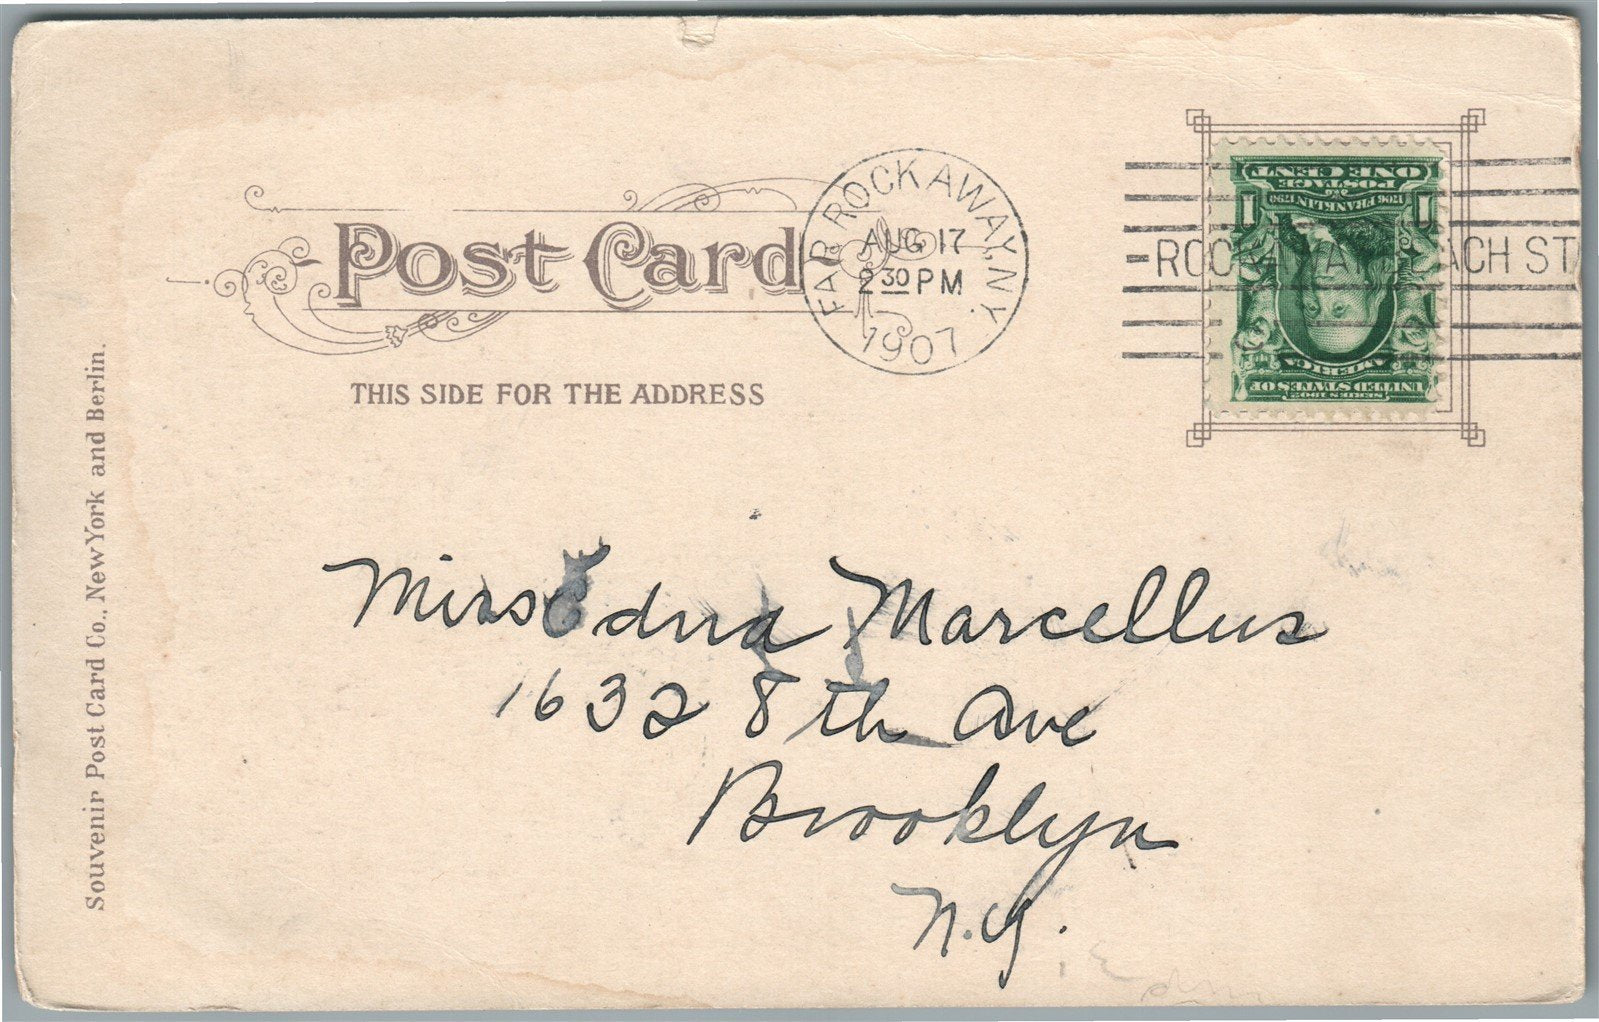 Post Card
THIS SIDE FOR THE ADDRESS
FAR ROCKAWAY, N.Y.
AUG 17
2 30 PM
1907
ONE CENT
POSTAGE
1706 FRANKLIN 1790
1 1
UNITED STATES OF
AMERICA
SERIES 1902
ACH ST
Miss Edna Marcellus
1632 8th Ave
Brooklyn
N.Y.
Souvenir Post Card Co., New York and Berlin.